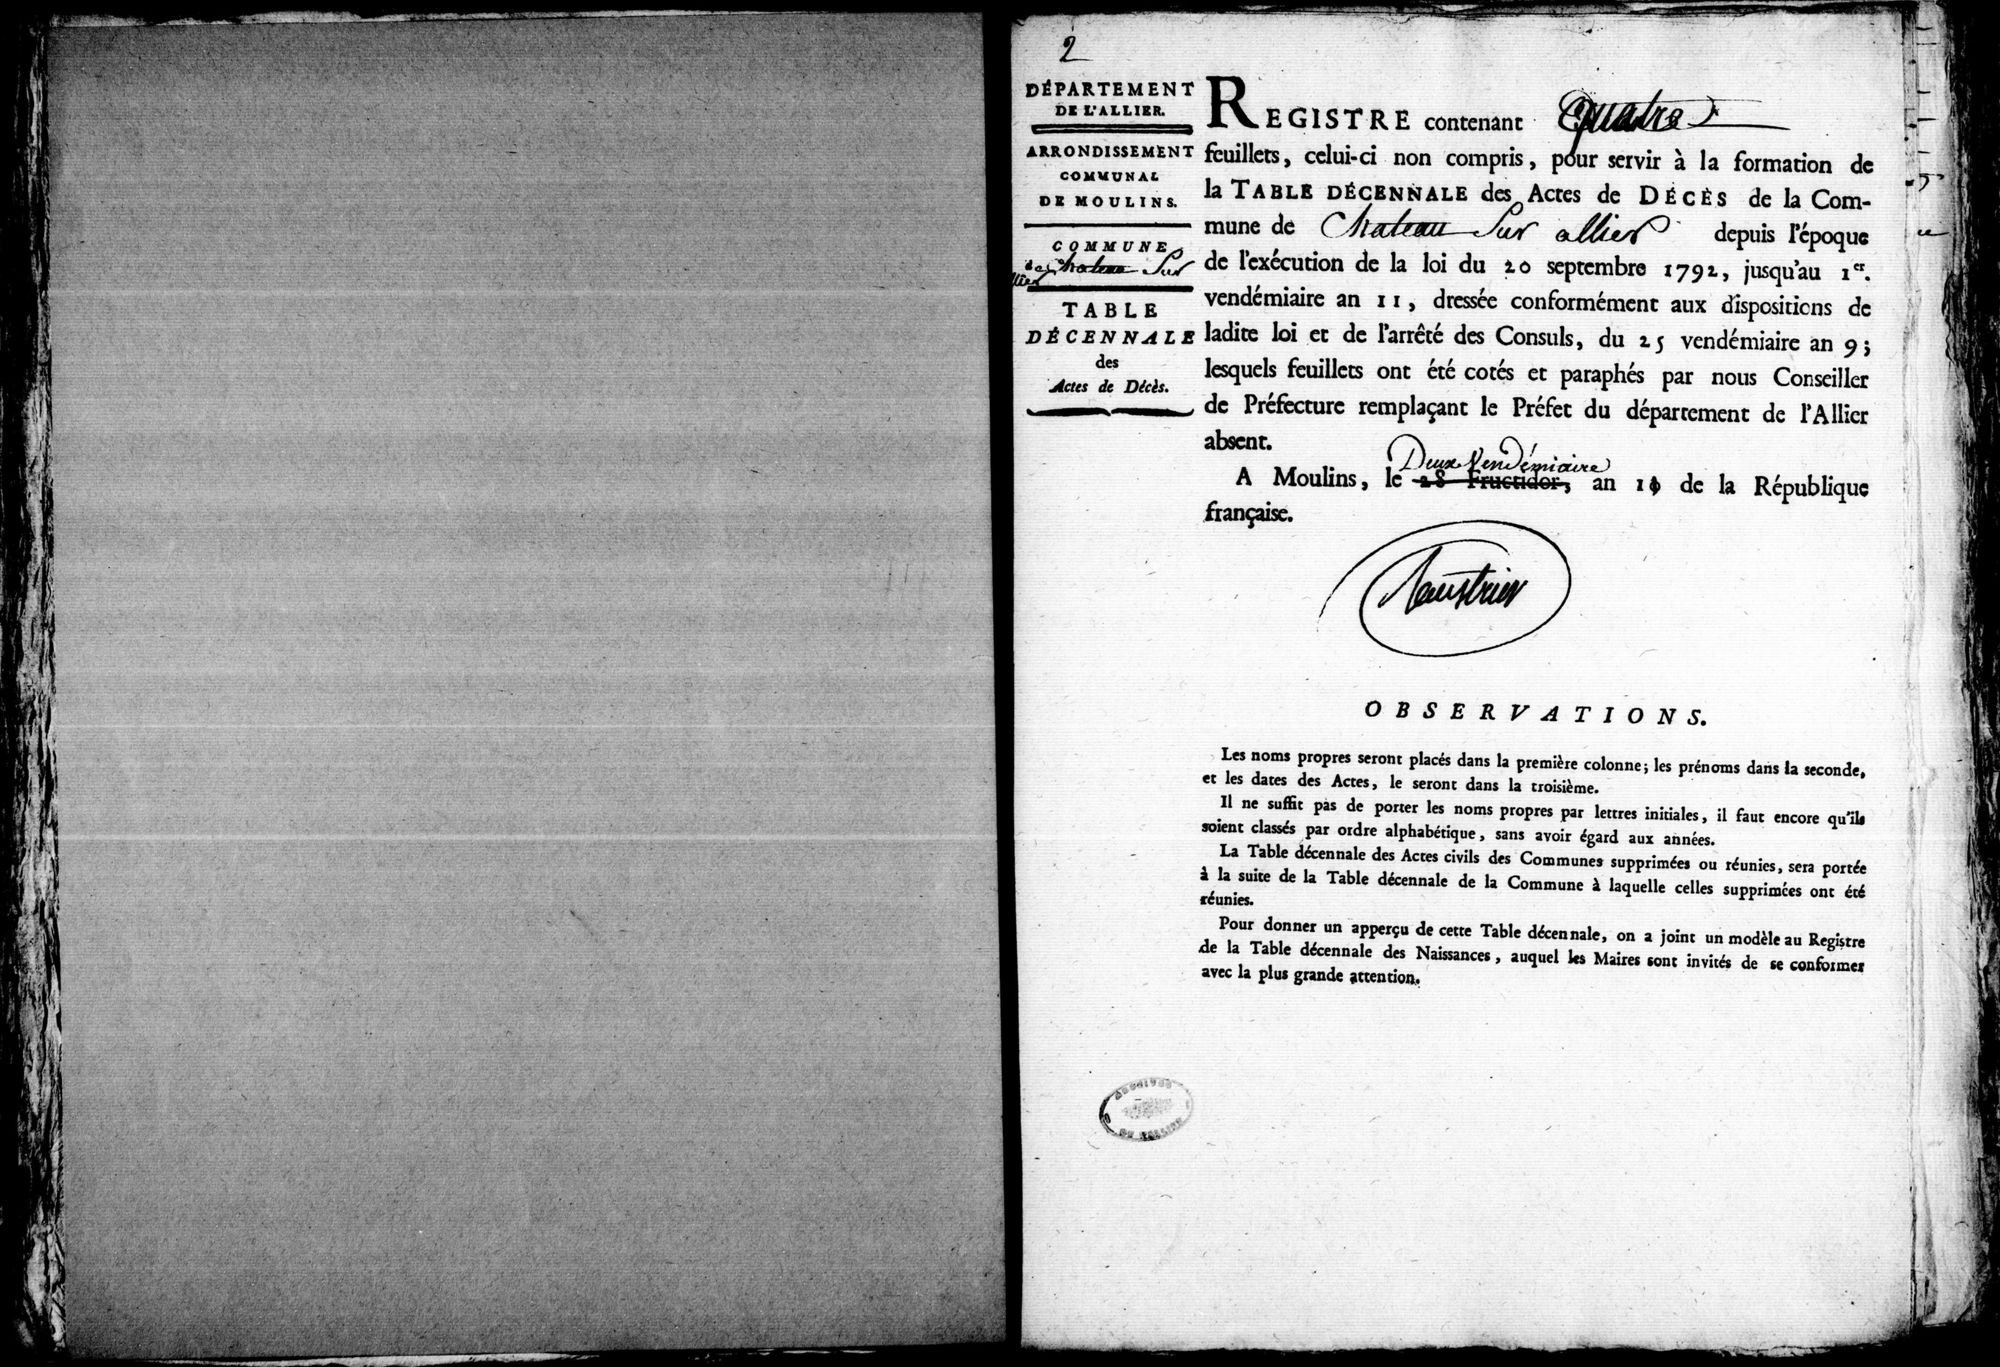 2
DÉPARTEMENT
DE L'ALLIER.
ARRONDISSEMENT
COMMUNAL
DE MOULINS.
COMMUNE
de Chateau Sur
allier
TABLE
DÉCENNALE
des
Actes de Décès.
REGISTRE contenant quatre
feuillets, celui-ci non compris, pour servir à la formation de
la TABLE DÉCENNALE des Actes de DÉCÈS de la Com-
mune de Chateau Sur allier depuis l'époque
de l'exécution de la loi du 20 septembre 1792, jusqu'au 1er.
vendémiaire an 11, dressée conformément aux dispositions de
ladite loi et de l'arrêté des Consuls, du 25 vendémiaire an 9;
lesquels feuillets ont été cotés et paraphés par nous Conseiller
de Préfecture remplaçant le Préfet du département de l'Allier
absent.
Deux Vendémiaire
A Moulins, le 28 Fructidor, an 11 de la République
française.
OBSERVATIONS.
Les noms propres seront placés dans la première colonne; les prénoms dans la seconde,
et les dates des Actes, le seront dans la troisième.
Il ne suffit pas de porter les noms propres par lettres initiales, il faut encore qu'ils
soient classés par ordre alphabétique, sans avoir égard aux années.
La Table décennale des Actes civils des Communes supprimées ou réunies, sera portée
à la suite de la Table décennale de la Commune à laquelle celles supprimées ont été
réunies.
Pour donner un apperçu de cette Table décennale, on a joint un modèle au Registre
de la Table décennale des Naissances, auquel les Maires sont invités de se conformer
avec la plus grande attention.
ARCHIVES